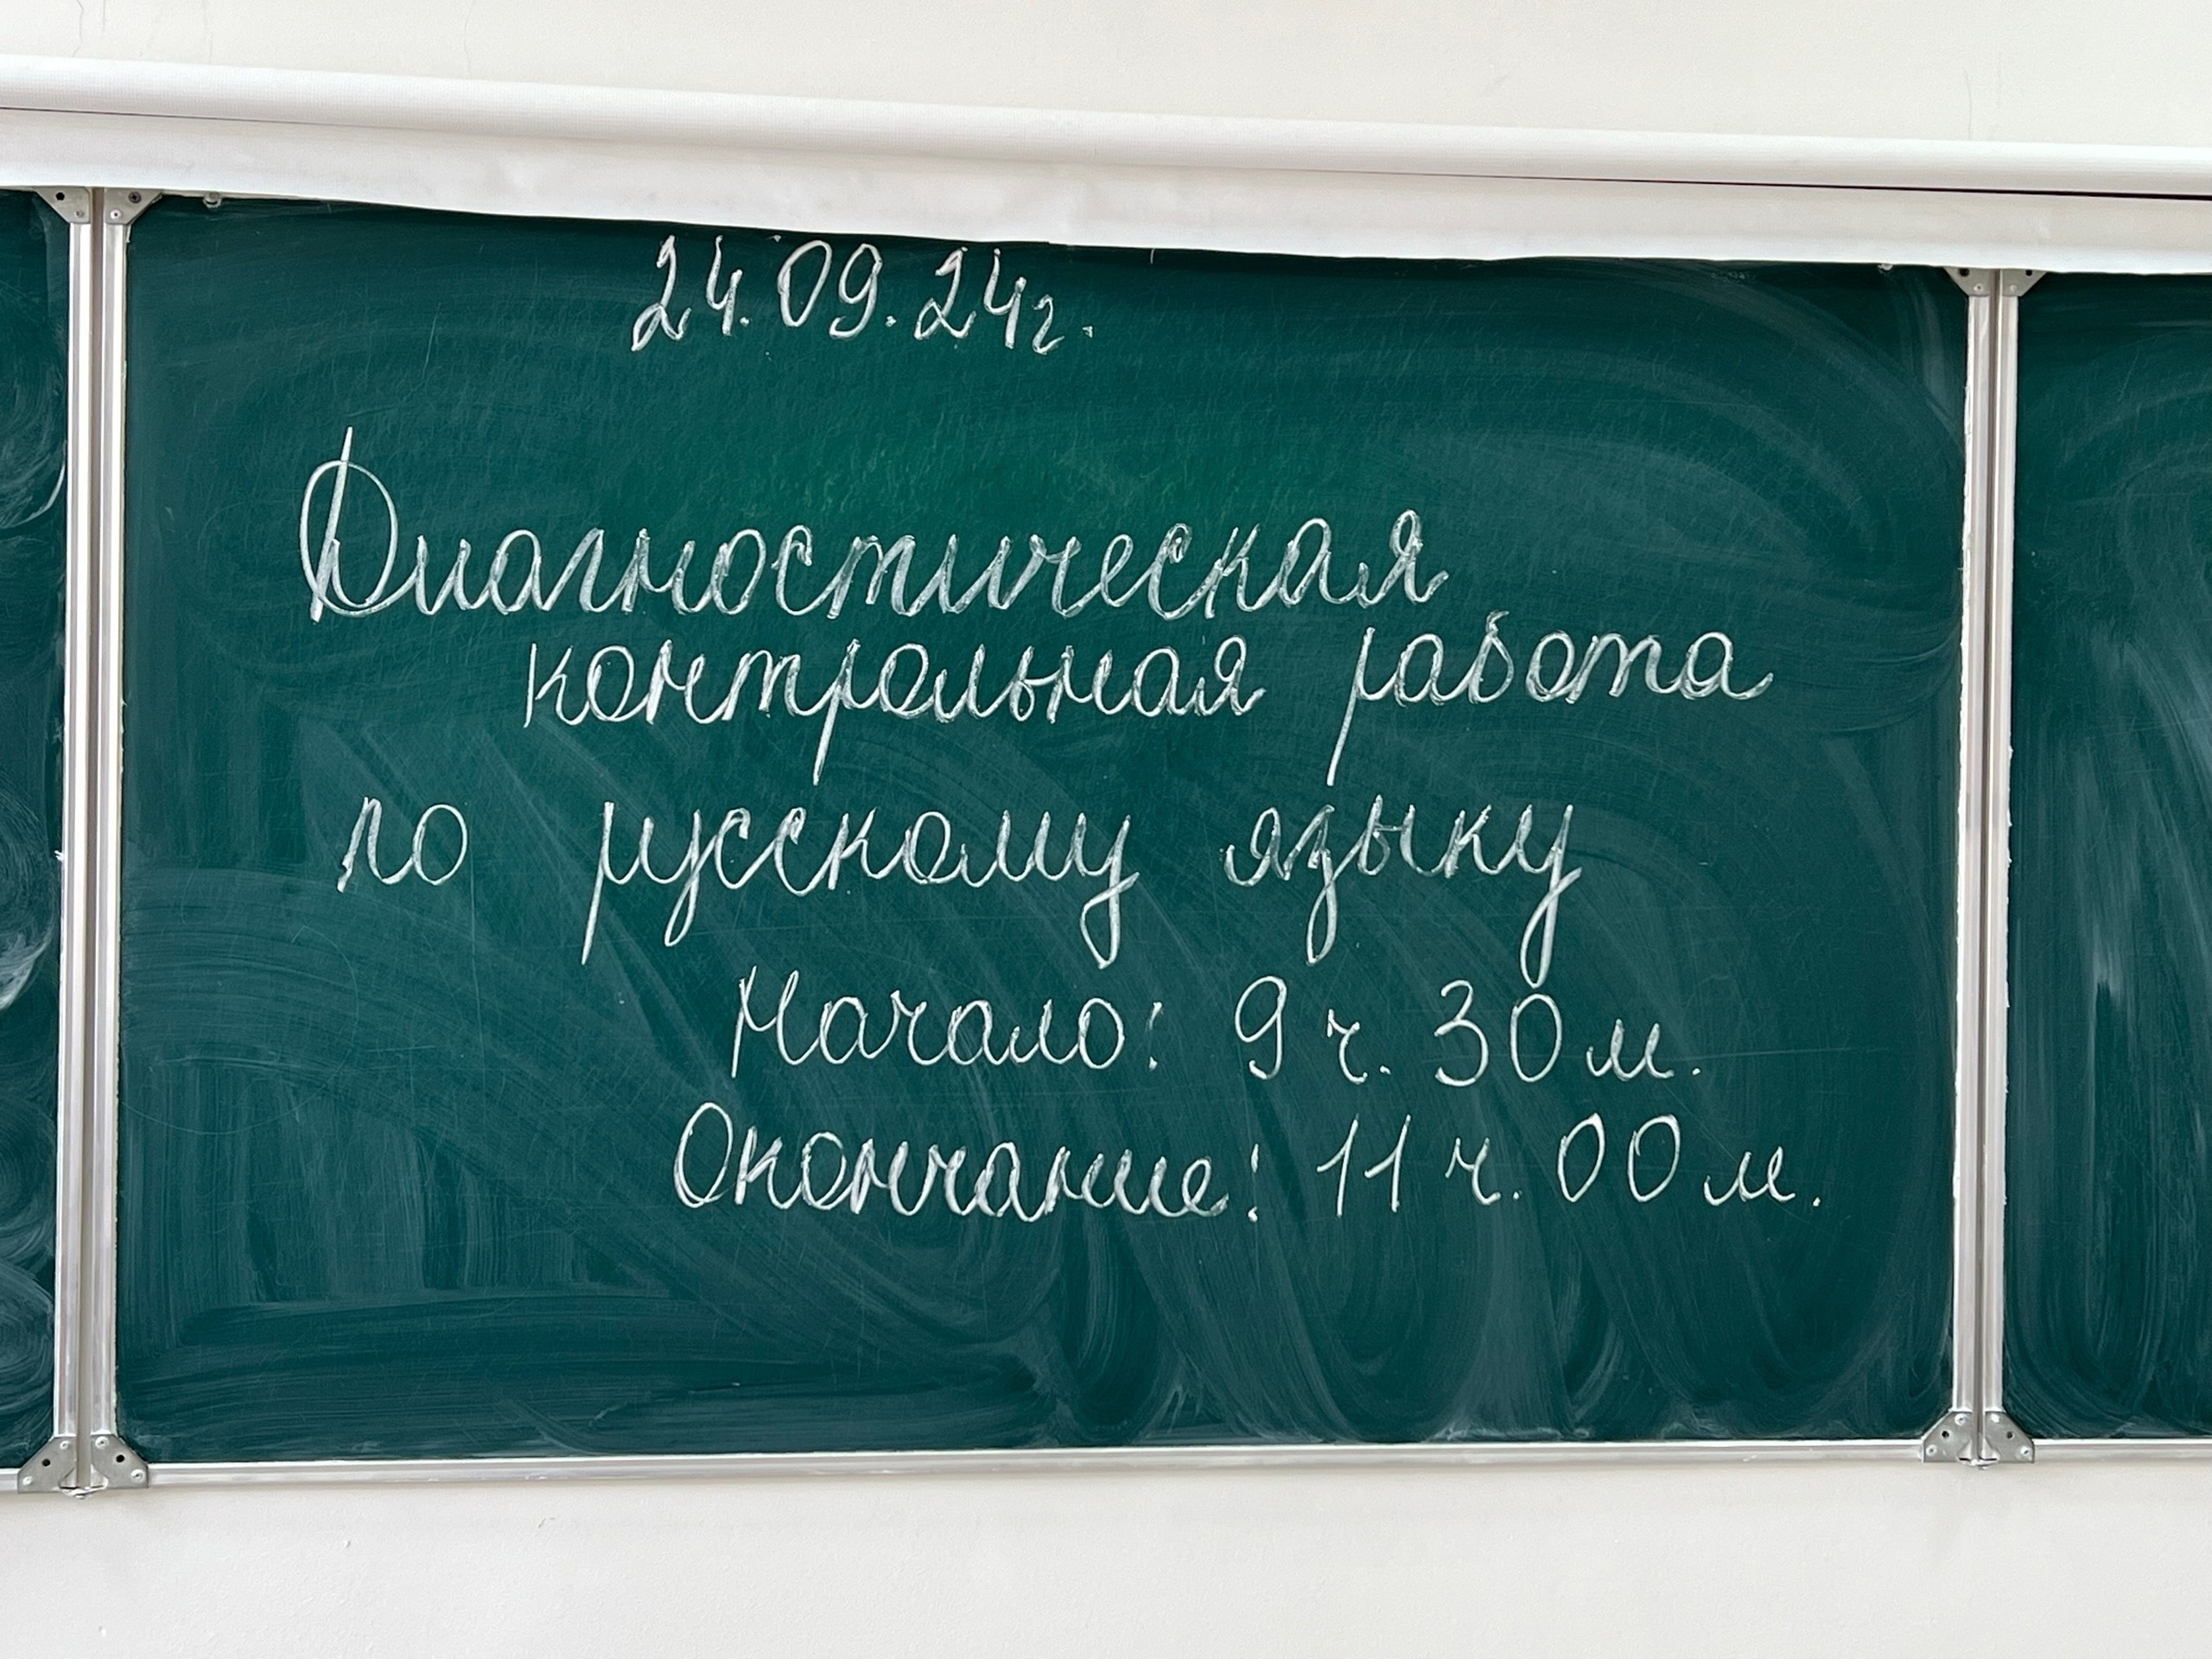 24.09.24г.
Диагностическая
контрольная работа
по русскому языку
Начало: 9 ч. 30 м.
Окончание: 11 ч. 00 м.